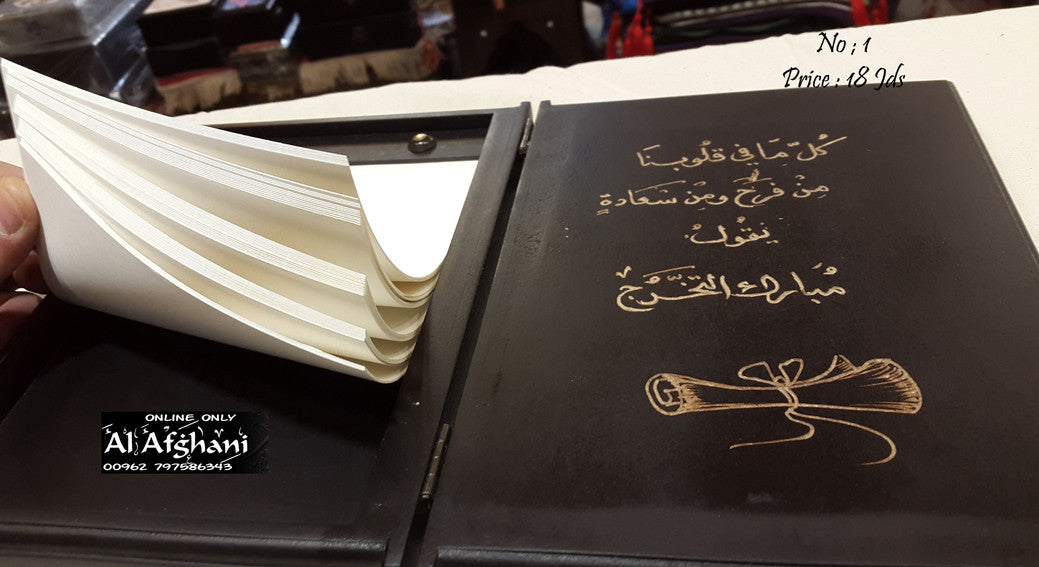 No ; 1
Price : 18 Jds
كُلّ مَا في قلُوبنَا
مِنْ فَرَحَ ومِنْ سَعَادةٍ
نِقُولُ:
مُبارك التخَرّجْ
ONLINE ONLY
Al Afghani
00962 797586343